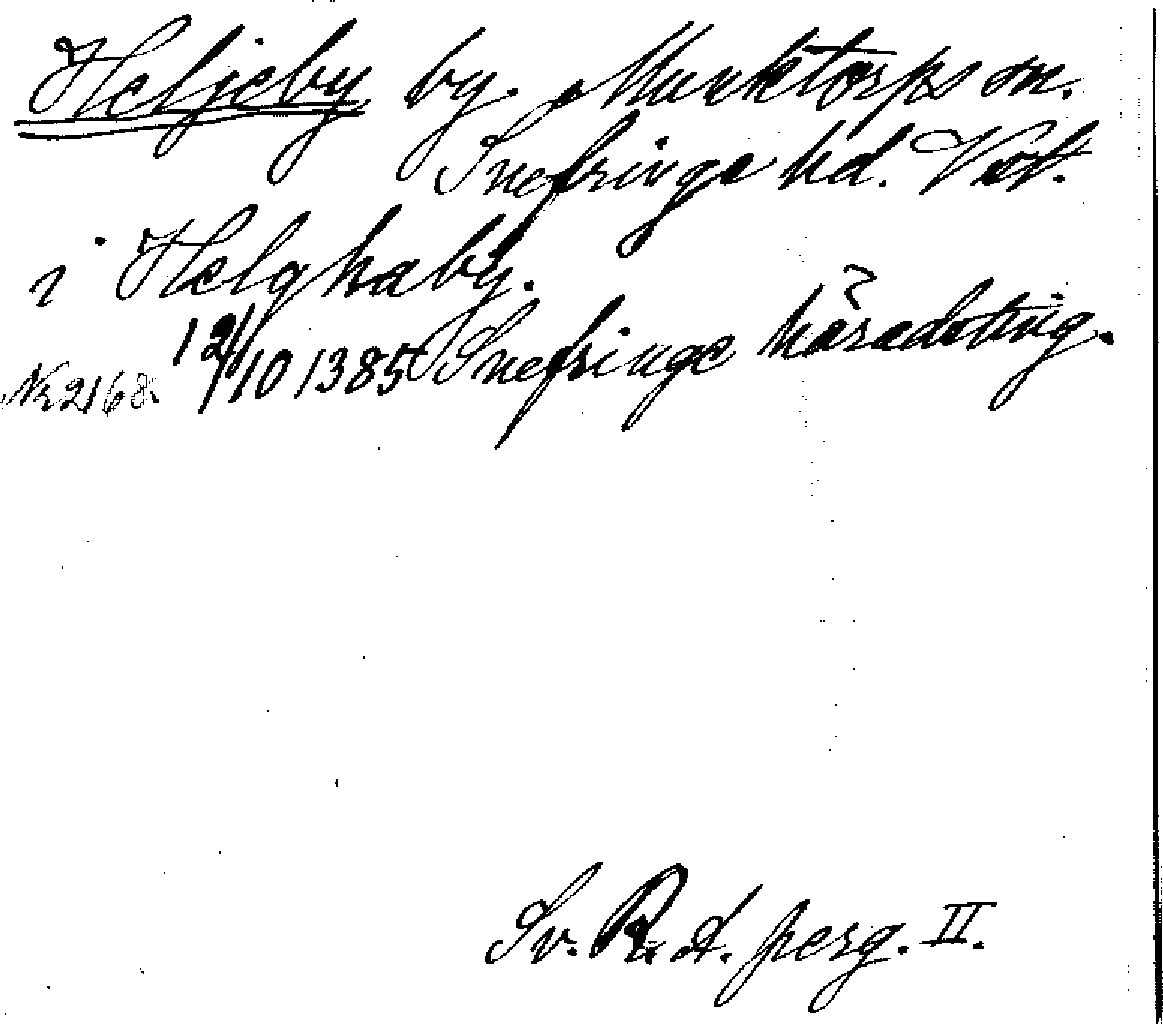 Heljeby by. Munktorps sn.
Snefringe hd. Vstl.
i Helghaby.
Nr 2168. 12/10 1385 Snefringe häradsting.
Sv. R. A. perg. II.